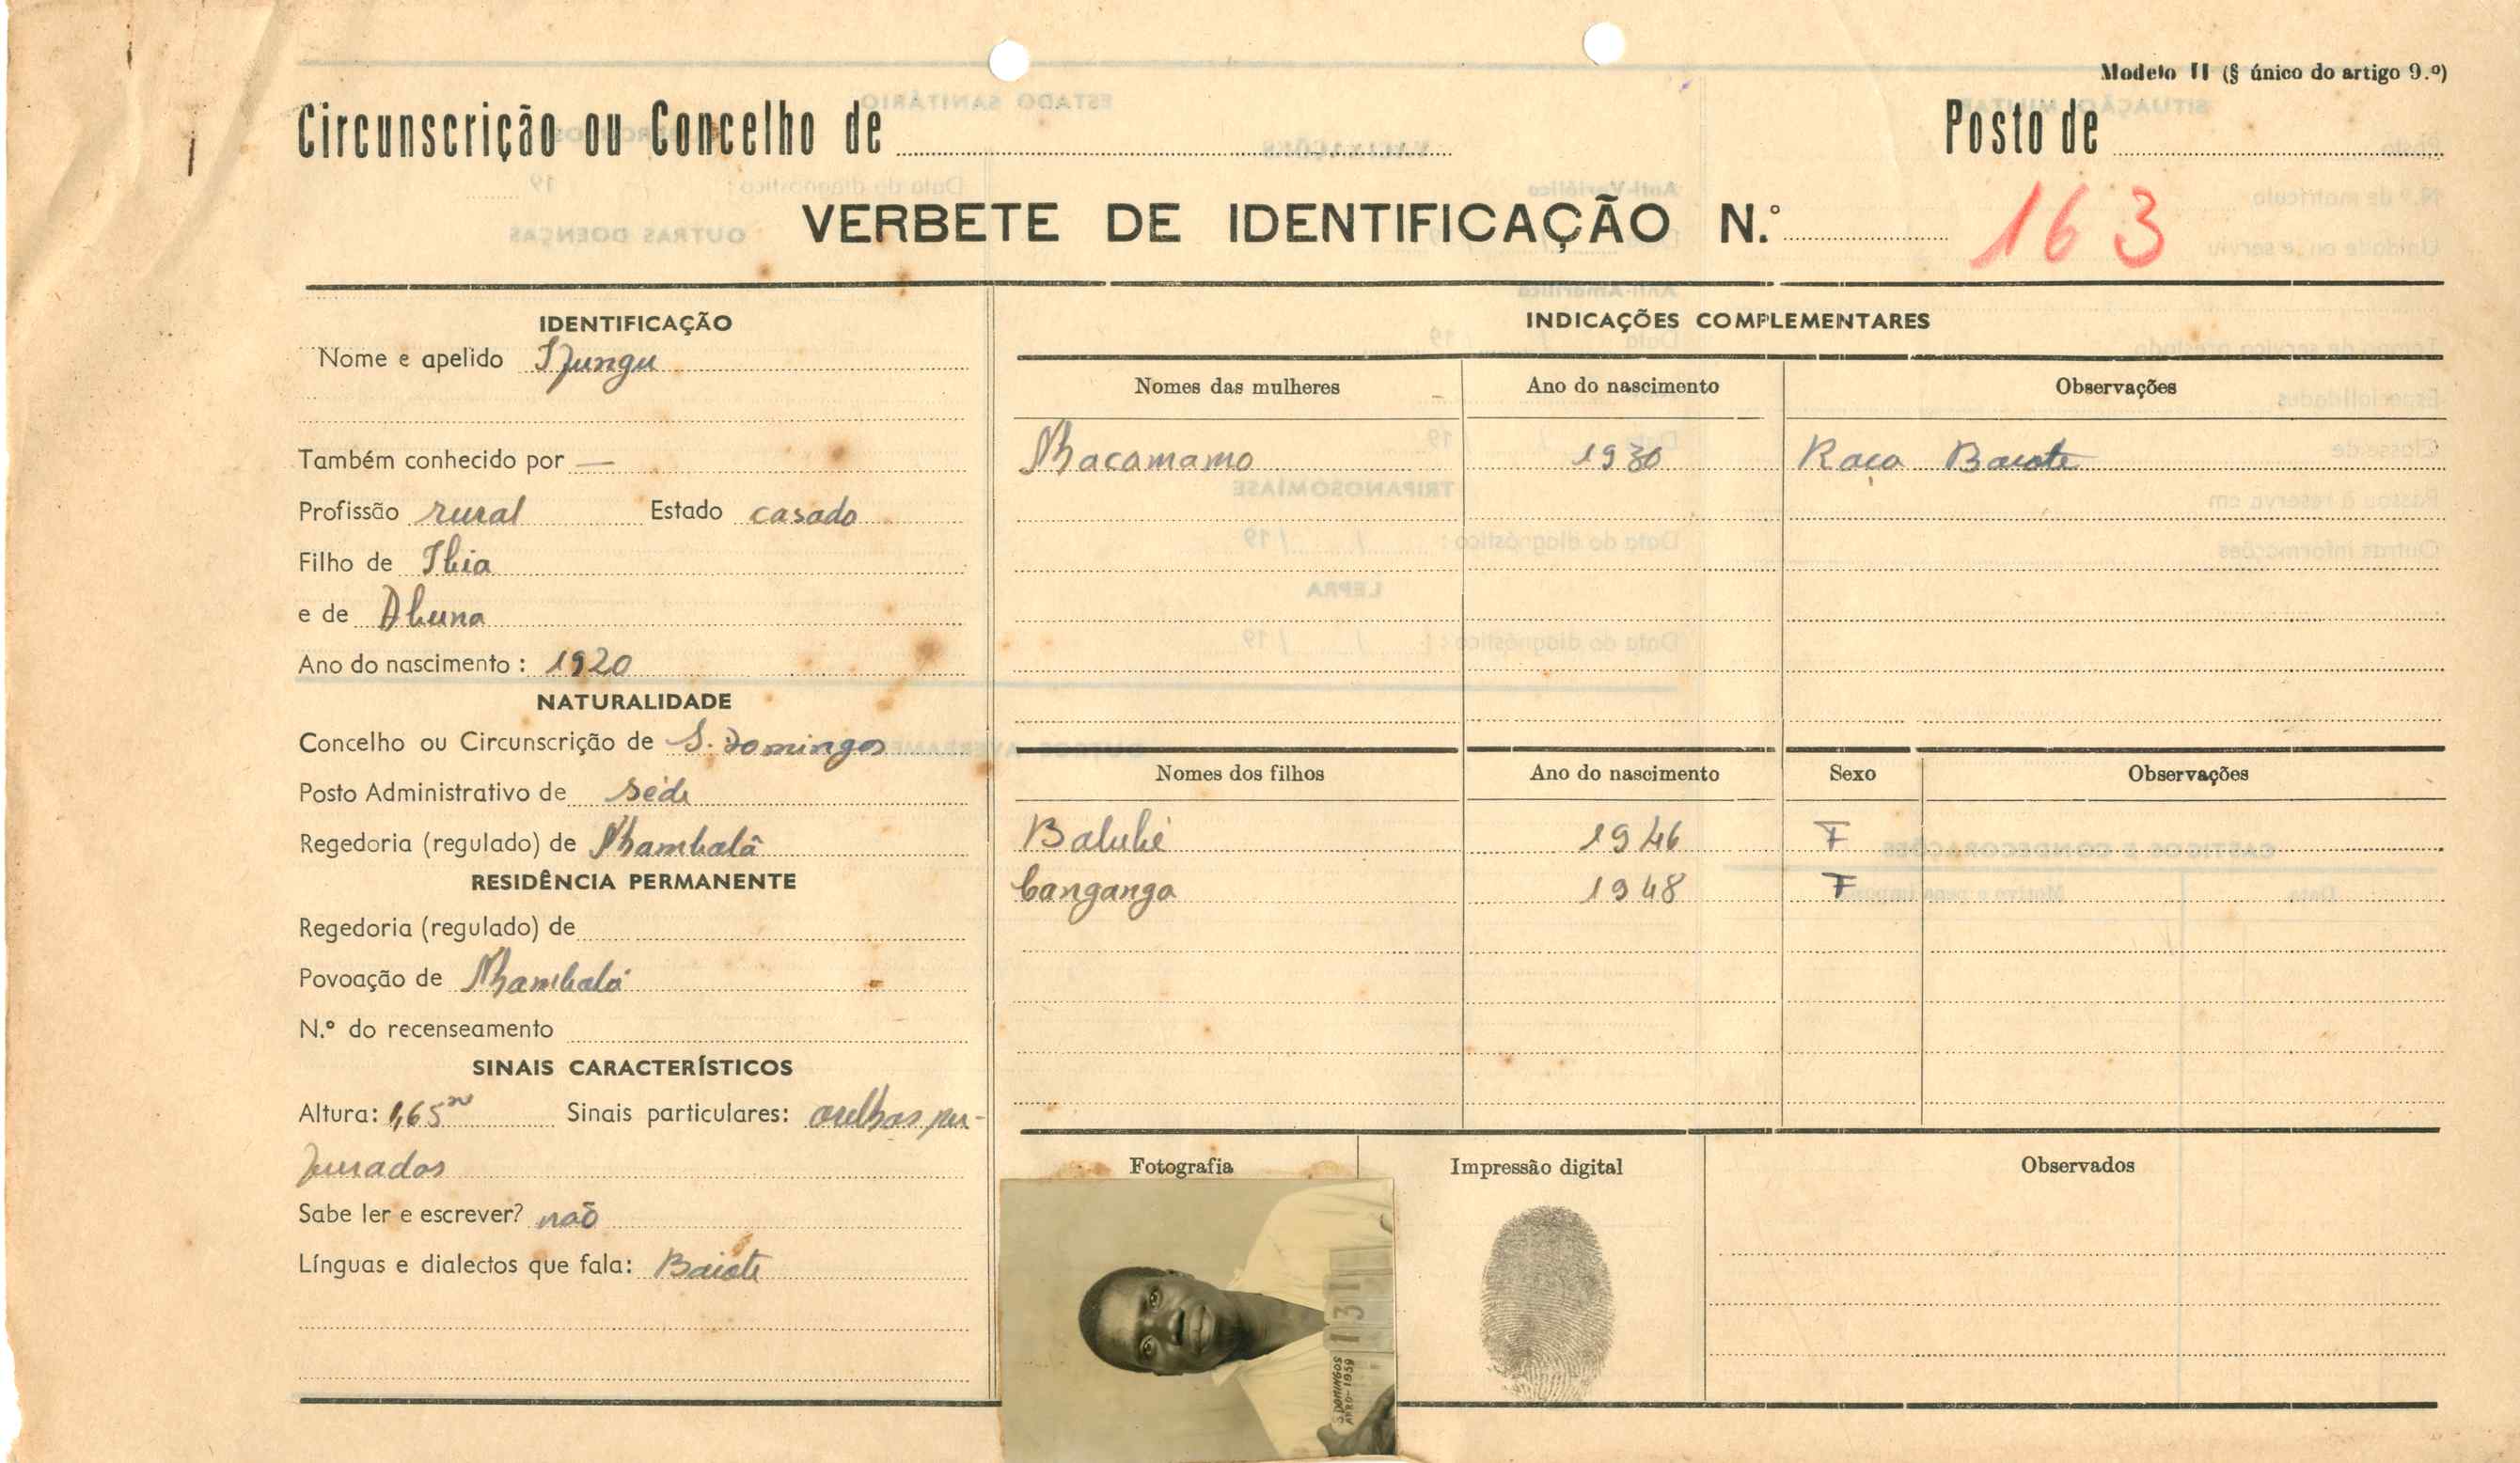 Modelo II (§ único do artigo 9.º)
Circunscrição ou Concelho de
Posto de
VERBETE DE IDENTIFICAÇÃO N.º 163
IDENTIFICAÇÃO
Nome e apelido
Também conhecido por —
Profissão rural Estado casado
Filho de
e de
Ano do nascimento : 1920
NATURALIDADE
Concelho ou Circunscrição de S. Domingos
Posto Administrativo de Séde
Regedoria (regulado) de
RESIDÊNCIA PERMANENTE
Regedoria (regulado) de
Povoação de
N.º do recenseamento
SINAIS CARACTERÍSTICOS
Altura: 1,65m Sinais particulares: orelhas
Sabe ler e escrever? não
Línguas e dialectos que fala: Baiote
INDICAÇÕES COMPLEMENTARES
Nomes das mulheres Ano do nascimento Observações
1930 Raça Baiote
Nomes dos filhos Ano do nascimento Sexo Observações
1946 F
Canganga 1948 F
Fotografia Impressão digital Observados
131
S. DOMINGOS
ANRO-1959